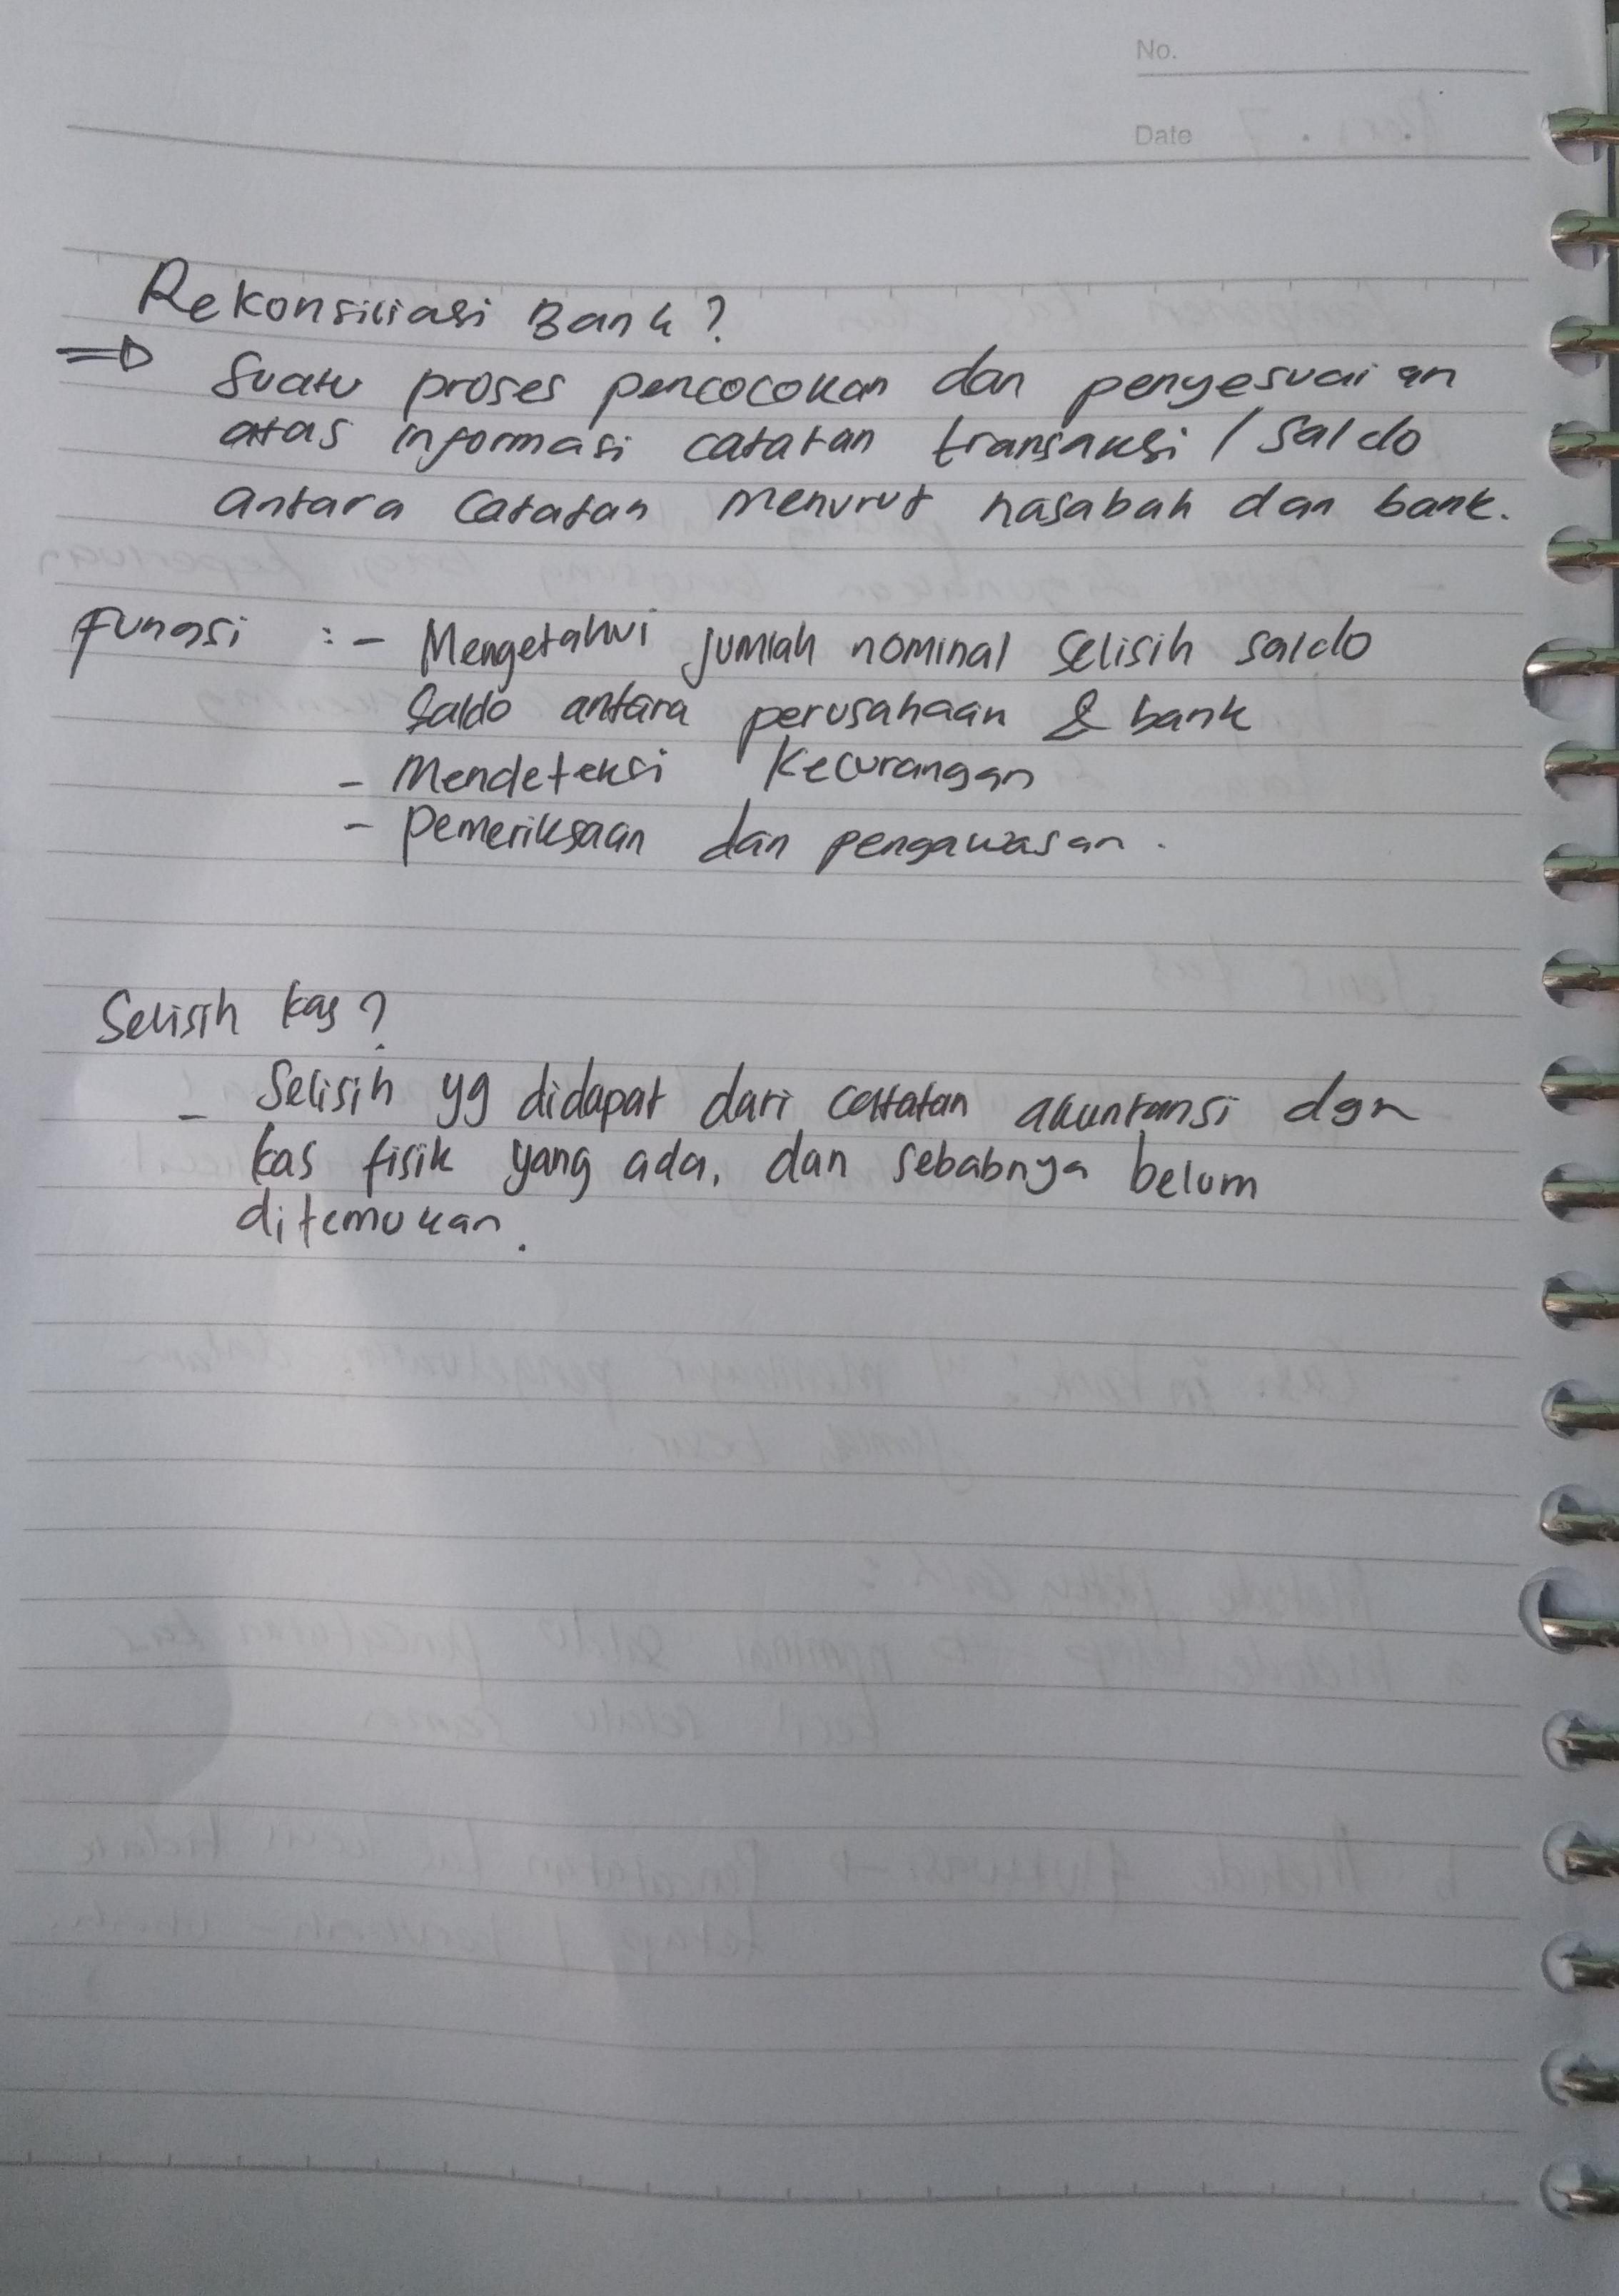 No.
Date
Rekonsiliasi Bank?
⇒ Suatu proses pencocokan dan penyesuaian
atas informasi catatan transaksi / saldo
antara catatan menurut nasabah dan bank.
fungsi : - Mengetahui jumlah nominal selisih saldo
saldo antara perusahaan & bank
- Mendeteksi kecurangan
- pemeriksaan dan pengawasan.
Selisih kas?
- Selisih yg didapat dari catatan akuntansi dgn
kas fisik yang ada, dan sebabnya belum
ditemukan.